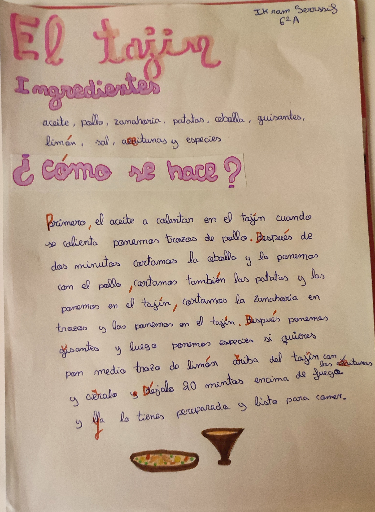 Ikram Serssif
6ºA
El tajin
Ingredientes
aceite, pollo, zanahoria, patatas, cebolla, guisantes,
limón, sal, aceitunas y especies
¿Cómo se hace?
Primero, el aceite a calentar en el tajín cuando
se calienta ponemos trozos de pollo. Después de
dos minutos cortamos la cebolla y la ponemos
con el pollo, cortamos también las patatas y las
ponemos en el tajín, cortamos la zanahoria en
trozos y las ponemos en el tajín. Después ponemos
gisantes y luego ponemos especies si quieres
pon medio trozo de limón arriba del tajín con
las aceitunas
y déjalo 20 minutos encima de fuego
y ya lo tienes preparada y lista para comer.